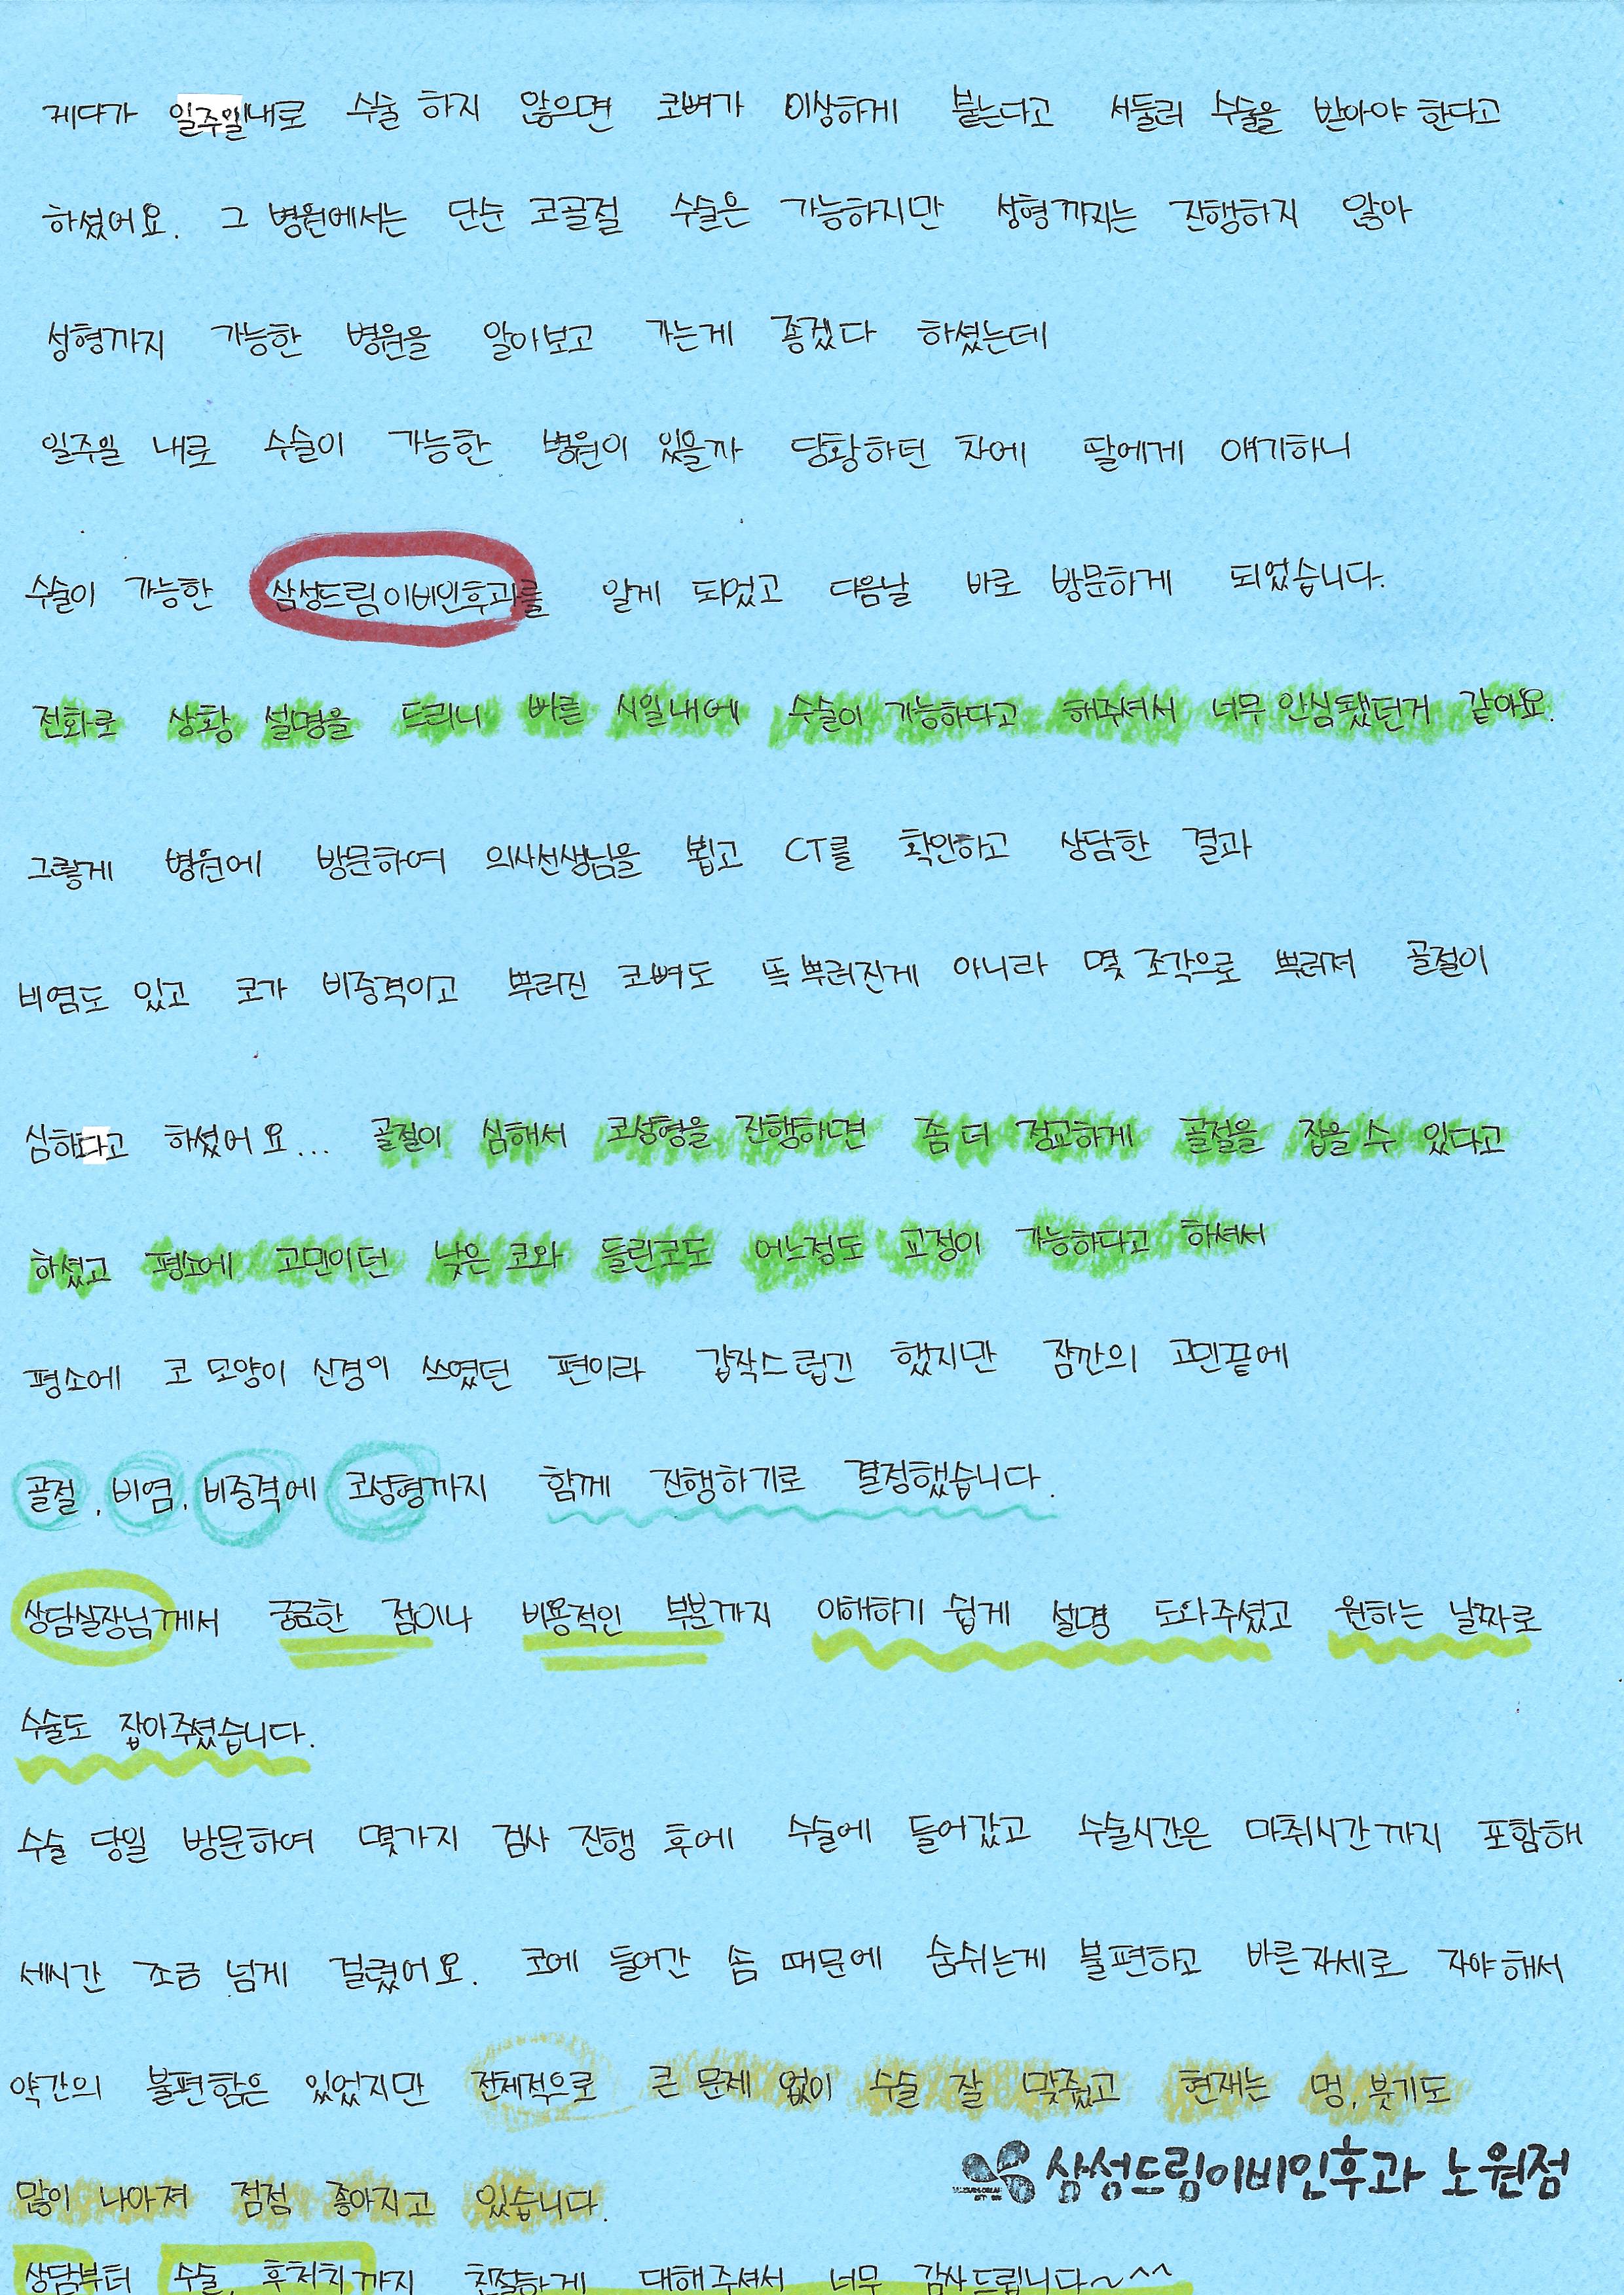 게다가 일주일내로 수술 하지 않으면 코뼈가 이상하게 붙는다고 서둘러 수술을 받아야 한다고
하셨어요. 그 병원에서는 단순 코골절 수술은 가능하지만 성형까지는 진행하지 않아
성형까지 가능한 병원을 알아보고 가는게 좋겠다 하셨는데
일주일 내로 수술이 가능한 병원이 있을까 당황하던 차에 딸에게 얘기하니
수술이 가능한 삼성드림이비인후과를 알게 되었고 다음날 바로 방문하게 되었습니다.
전화로 상황 설명을 드리니 빠른 시일내에 수술이 가능하다고 해주셔서 너무 안심됐던거 같아요.
그렇게 병원에 방문하여 의사선생님을 뵙고 CT를 확인하고 상담한 결과
비염도 있고 코가 비중격이고 뿌러진 코뼈도 똑 뿌러진게 아니라 몇 조각으로 뿌러져 골절이
심하다고 하셨어요... 골절이 심해서 코성형을 진행하면 좀 더 정교하게 골절을 잡을 수 있다고
하셨고 평소에 고민이던 낮은 코와 들린코도 어느정도 교정이 가능하다고 하셔서
평소에 코 모양이 신경이 쓰였던 편이라 갑작스럽긴 했지만 잠깐의 고민끝에
골절, 비염, 비중격에 코성형까지 함께 진행하기로 결정했습니다.
상담실장님께서 궁금한 점이나 비용적인 부분까지 이해하기 쉽게 설명 도와주셨고 원하는 날짜로
수술도 잡아주셨습니다.
수술 당일 방문하여 몇가지 검사 진행 후에 수술에 들어갔고 수술시간은 마취시간까지 포함해
세시간 조금 넘게 걸렸어요. 코에 들어간 솜 때문에 숨쉬는게 불편하고 바른자세로 자야해서
약간의 불편함은 있었지만 전체적으로 큰 문제 없이 수술 잘 맞췄고 현재는 멍, 붓기도
많이 나아져 점점 좋아지고 있습니다.
삼성드림이비인후과 노원점
상담부터 수술, 후처치까지 친절하게 대해주셔서 너무 감사드립니다~^^